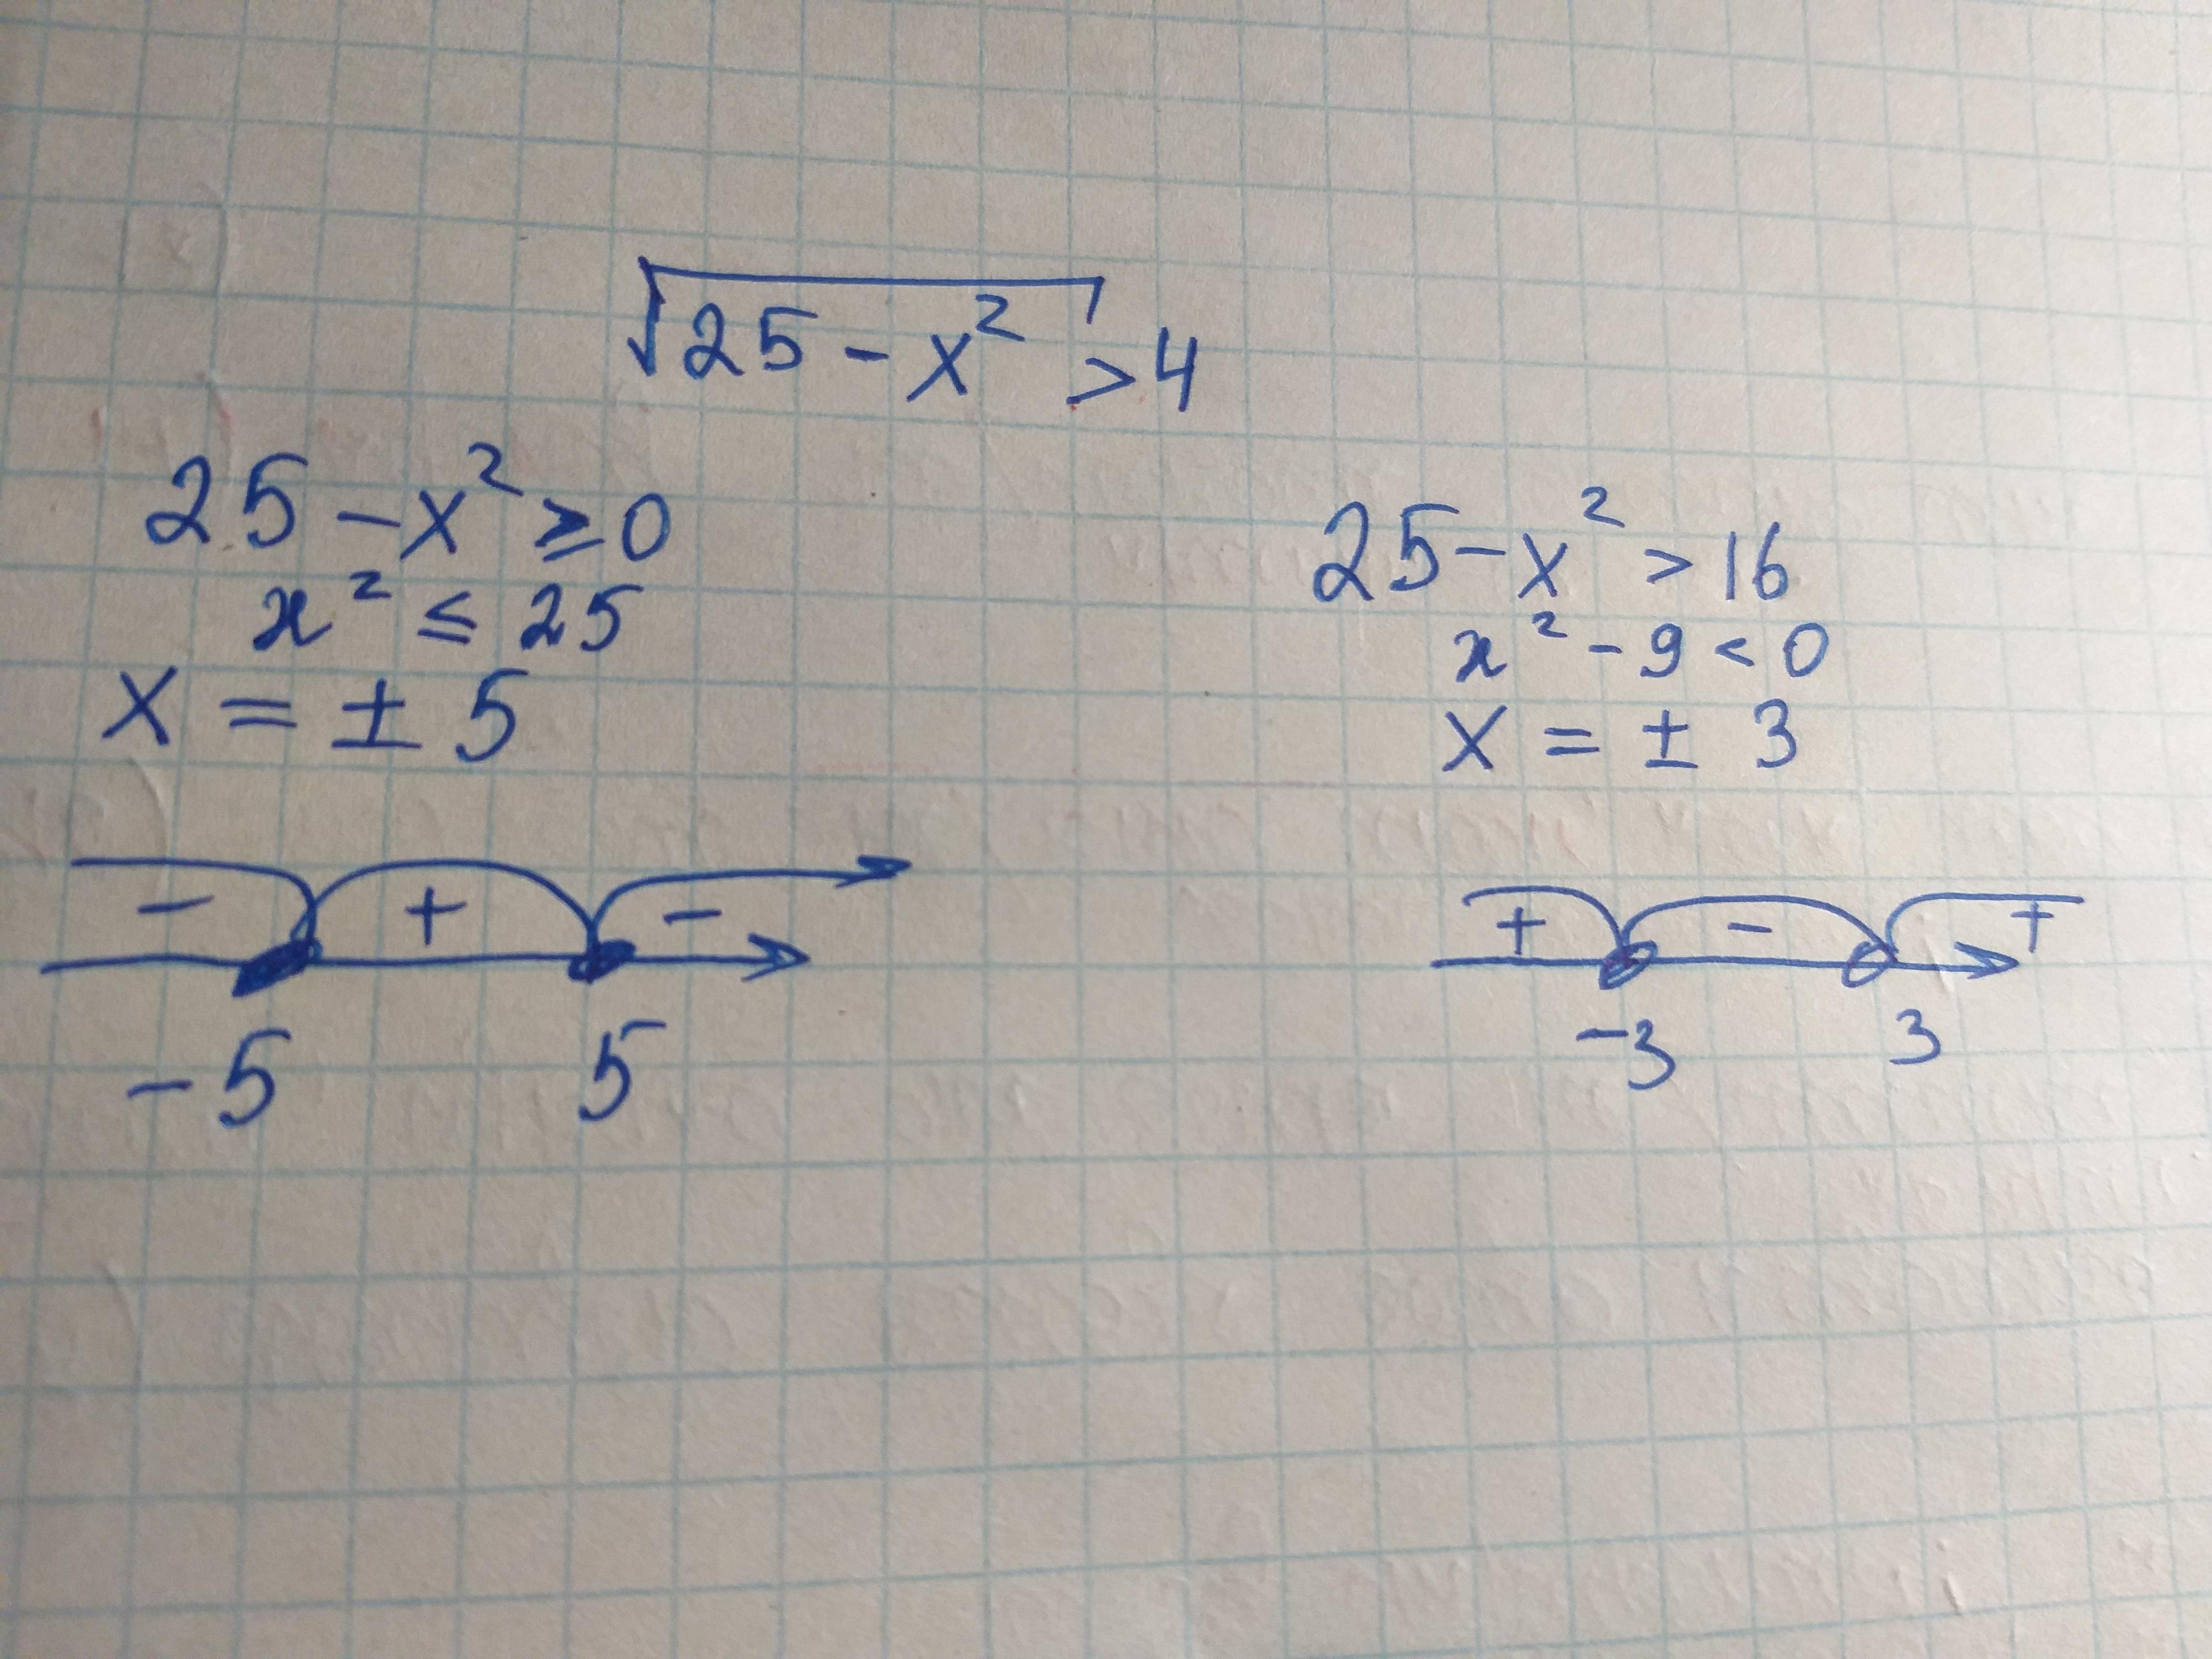 √25 - x² > 4
25 - x² ≥ 0
x² ≤ 25
x = ± 5
- + -
-5 5
25 - x² > 16
x² - 9 < 0
x = ± 3
+ - +
-3 3